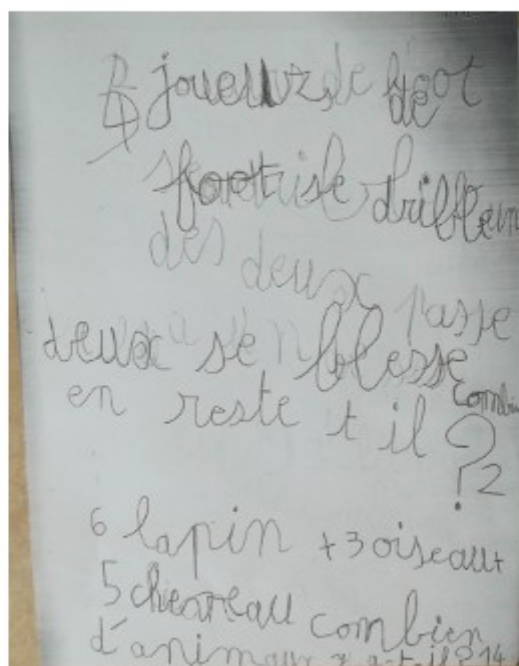 4 joueurz de foot de
foot se dribble
des deux passe
deux se blesse
combien
en reste t il ? 2
6 lapin + 3 oiseau +
5 chevreau combien
d'animaux y a-t-il ? 14